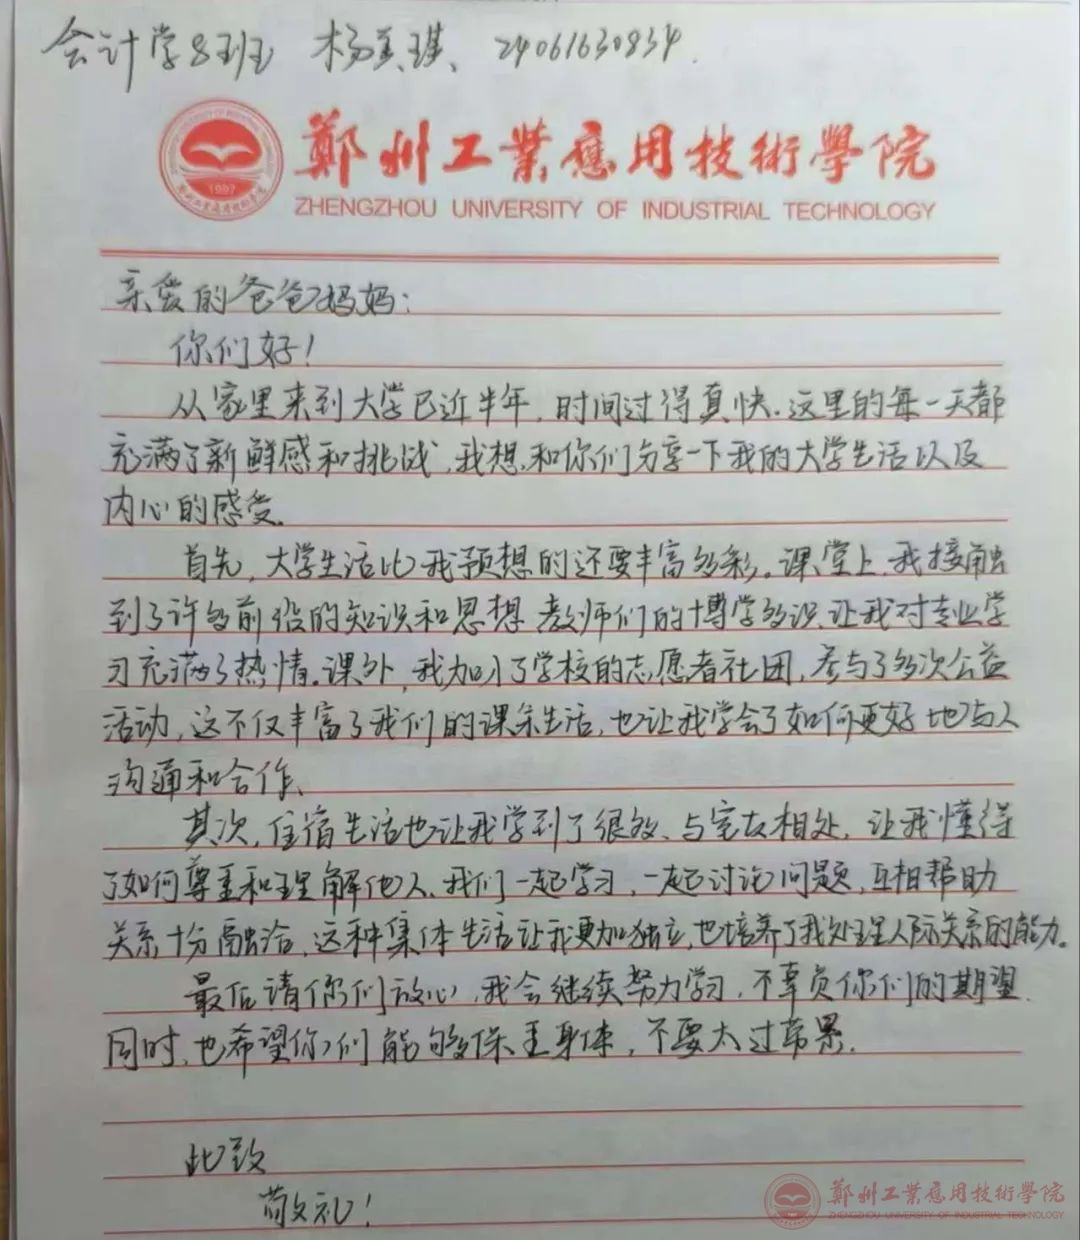 会计学8班 杨美琪、24061630834.
鄭州工業應用技術學院
ZHENGZHOU UNIVERSITY OF INDUSTRIAL TECHNOLOGY
1997
亲爱的爸爸妈妈:
你们好!
从家里来到大学已近半年,时间过得真快.这里的每一天都
充满了新鲜感和挑战,我想和你们分享一下我的大学生活以及
内心的感受.
首先,大学生活比我预想的还要丰富多彩。课堂上,我接触
到了许多前沿的知识和思想,教师们的博学多识让我对专业学
习充满了热情.课外,我加入了学校的志愿者社团,参与了多次公益
活动,这不仅丰富了我们的课余生活,也让我学会了如何更好地与人
沟通和合作、
其次,住宿生活也让我学到了很多、与室友相处,让我懂得
了如何尊重和理解他人、我们一起学习,一起讨论问题,互相帮助
关系十分融洽,这种集体生活让我更加独立,也培养了我处理人际关系的能力。
最后请你们放心,我会继续努力学习,不辜负你们的期望.
同时,也希望你们能够保重身体,不要太过劳累.
此致
敬礼!
鄭州工業應用技術學院
ZHENGZHOU UNIVERSITY OF INDUSTRIAL TECHNOLOGY